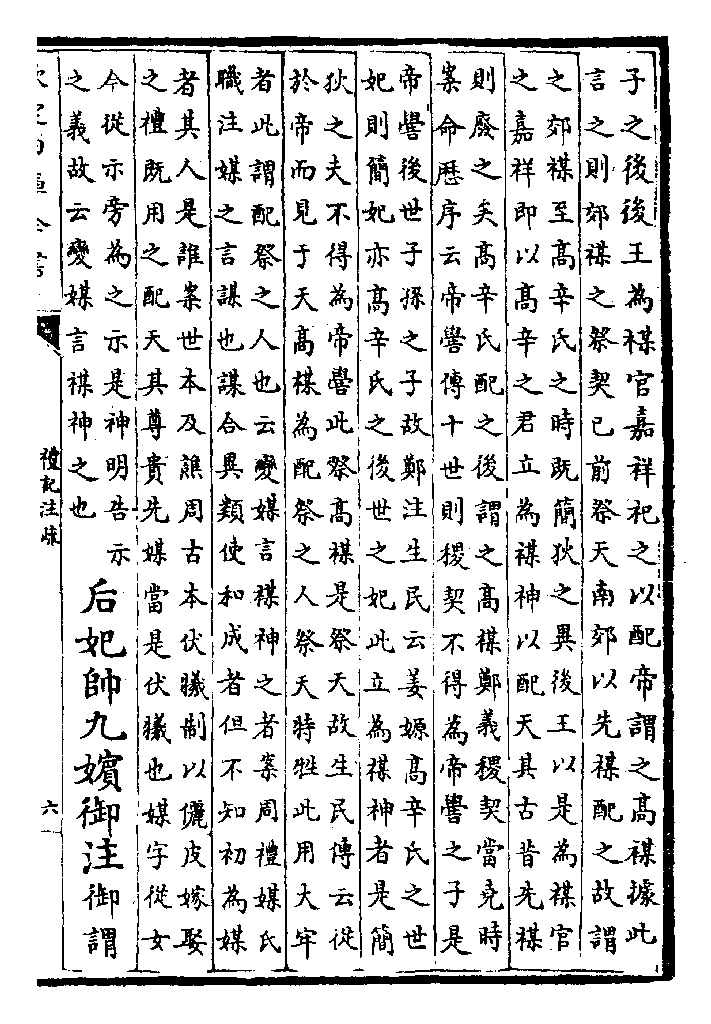 子之後後王為禖官嘉祥祀之以配帝謂之高禖據此
言之則郊禖之祭契已前祭天南郊以先禖配之故謂
之郊禖至高辛氏之時既簡狄之異後王以是為禖官
之嘉祥即以高辛之君立為禖神以配天其古昔先禖
則廢之矣高辛氏配之後謂之高禖鄭義稷契當堯時
案命歴序云帝嚳傳十世則稷契不得為帝嚳之子是
帝嚳後世子孫之子故鄭注生民云姜嫄高辛氏之世
妃則簡妃亦高辛氏之後世之妃此立為禖神者是簡
狄之夫不得為帝嚳此祭高禖是祭天故生民傳云從
於帝而見于天高禖為配祭之人祭天特牲此用大牢
者此謂配祭之人也云變媒言禖神之者案周禮媒氏
職注媒之言謀也謀合異類使和成者但不知初為媒
者其人是誰案世本及譙周古本伏犧制以儷皮嫁娶
之禮既用之配天其尊貴先媒當是伏犧也媒字從女
今從示旁為之示是神明告示
之義故云變媒言禖神之也
后妃帥九嬪御注御謂
欽定四庫全書
禮記注疏
六